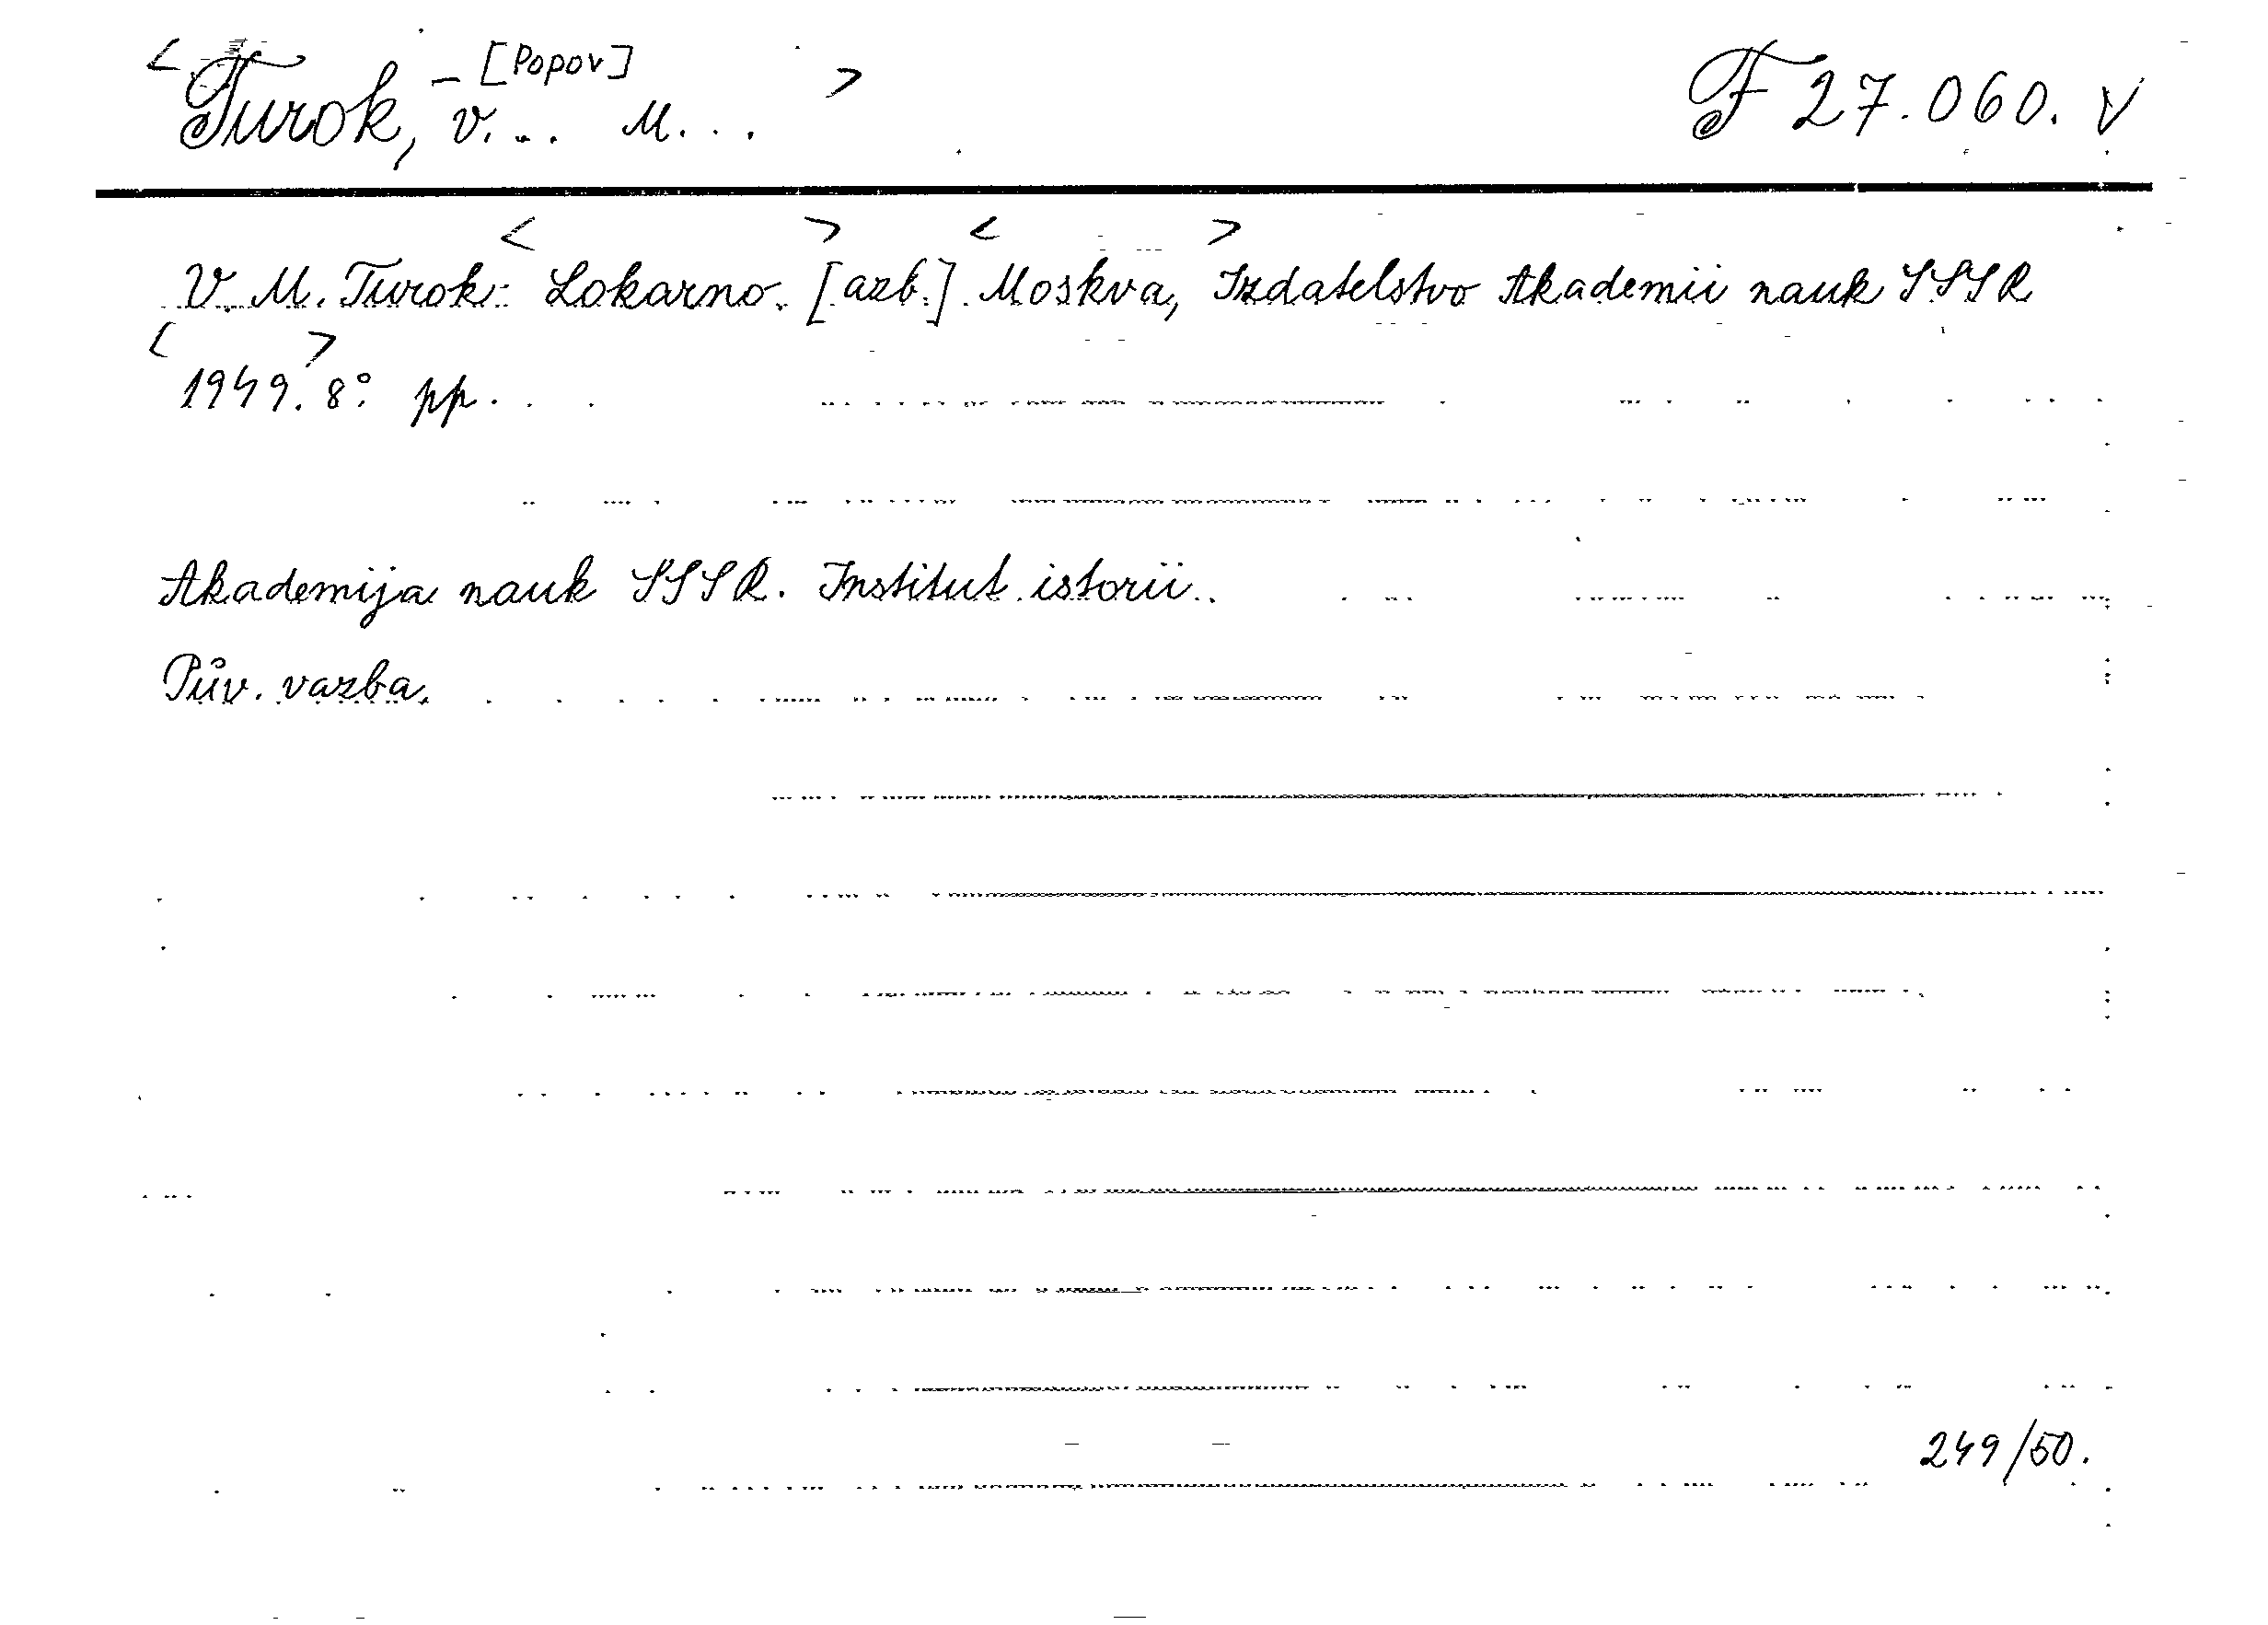 < Turok, - [Popov] V... M... > F 27.060. V
V. M. Turok: <Lokarno.> [azb.] <Moskva,> Izdatelstvo Akademii nauk SSSR
<1949.> 8° pp.
Akademija nauk SSSR. Institut istorii.
Pův. vazba.
249/50.